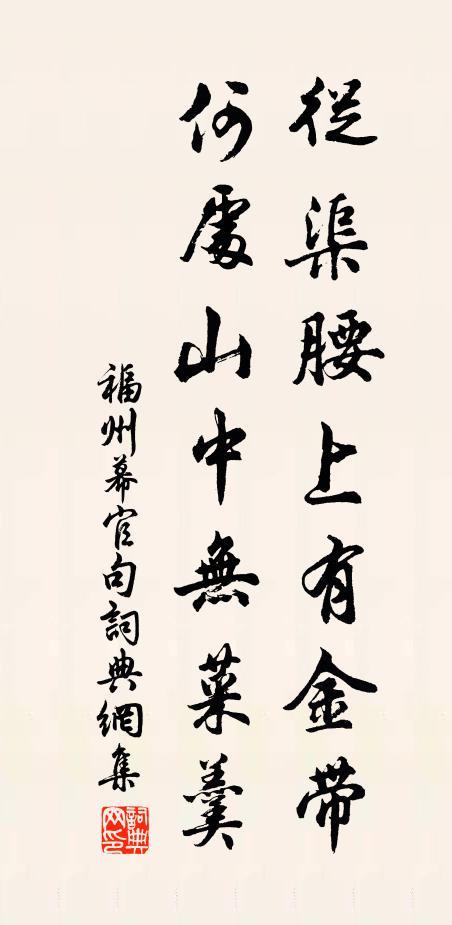 從渠腰上有金帶
何處山中無菜羹
福州幕官句詞典網集
詞典
网印